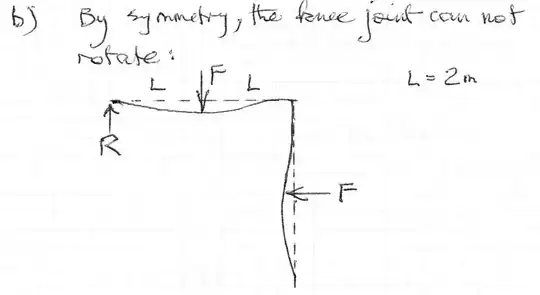 b) By symmetry, the knee joint can not
rotate:
L F L L = 2m
R
F